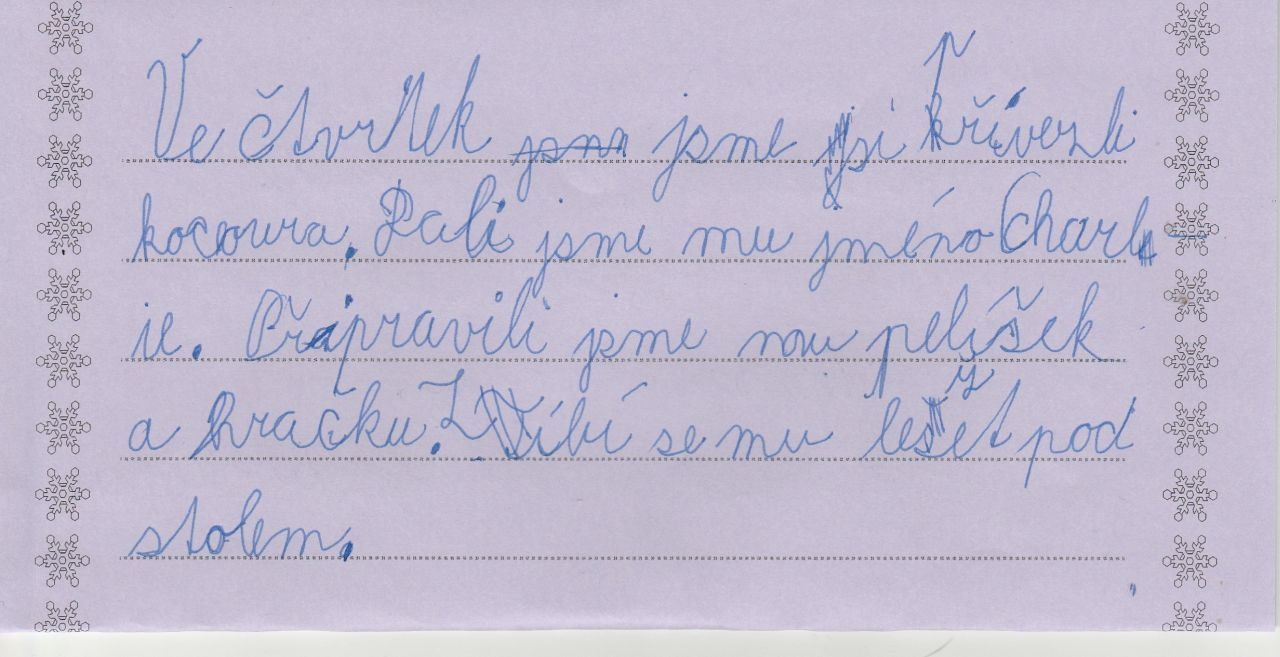 Ve čtvrtek jsme si přivezli
kocoura. Dali jsme mu jméno Charl-
ie. Připravili jsme mu pelíšek
a hračku. Líbí se mu ležet pod
stolem.